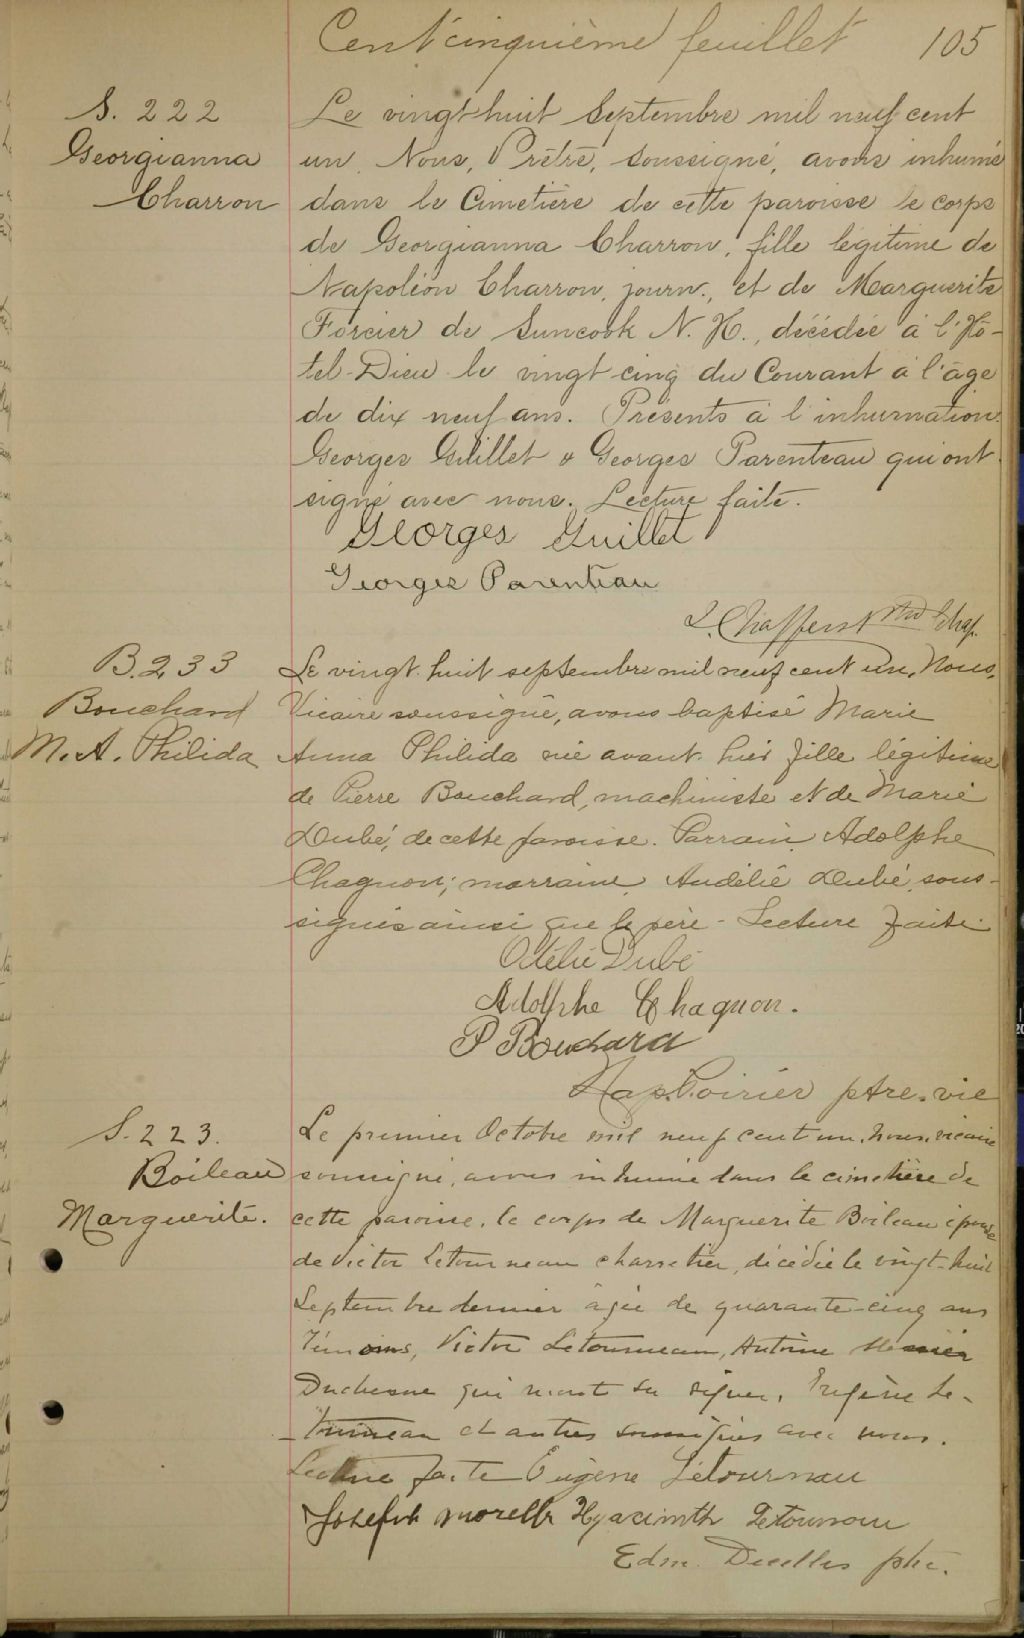 Cent cinquième feuillet 105
S. 222
Georgianna
Charron
Le vingt huit Septembre mil neuf cent
un, Nous, Prêtre, soussigné, avons inhumé
dans le Cimetière de cette paroisse le corps
de Georgianna Charron, fille légitime de
Napoléon Charron, journ., et de Marguerite
Forcier de Suncook N. H., décédée à l'Hô-
tel-Dieu le vingt cinq du Courant à l'âge
de dix neuf ans. Présents à l'inhumation
Georges Guillet & Georges Parenteau qui ont
signé avec nous. Lecture faite.
Georges Guillet
Georges Parenteau
L. Chaffers Ptre Chap.
B. 233
Bouchard
M. A. Philida
Le vingt-huit septembre mil neuf cent un, Nous,
Vicaire soussigné, avons baptisé Marie
Anna Philida née avant-hier fille légitime
de Pierre Bouchard, machiniste et de Marie
Dubé, de cette paroisse. Parrain Adolphe
Chagnon; marraine Audélie Dubé, sous-
signés ainsi que le père - Lecture faite.
Odélie Dubé
Adolphe Chagnon.
P Bouchard
Nap. Poirier ptre. vic
S. 223.
Boileau
Marguerite.
Le premier Octobre mil neuf cent un, nous, vicaire
soussigné, avons inhumé dans le cimetière de
cette paroisse, le corps de Marguerite Boileau épouse
de Victor Letourneau charretier, décédée le vingt-huit
Septembre dernier âgée de quarante-cinq ans
Témoins, Victor Letourneau, Antoine
Duchesne qui n'ont su signer, Eugène Le-
-tourneau et autres soussignés avec nous.
Lecture faite Eugène Létournau
Joseph Morelle Hyacinth Letournau
Edm. Decelles ptre.